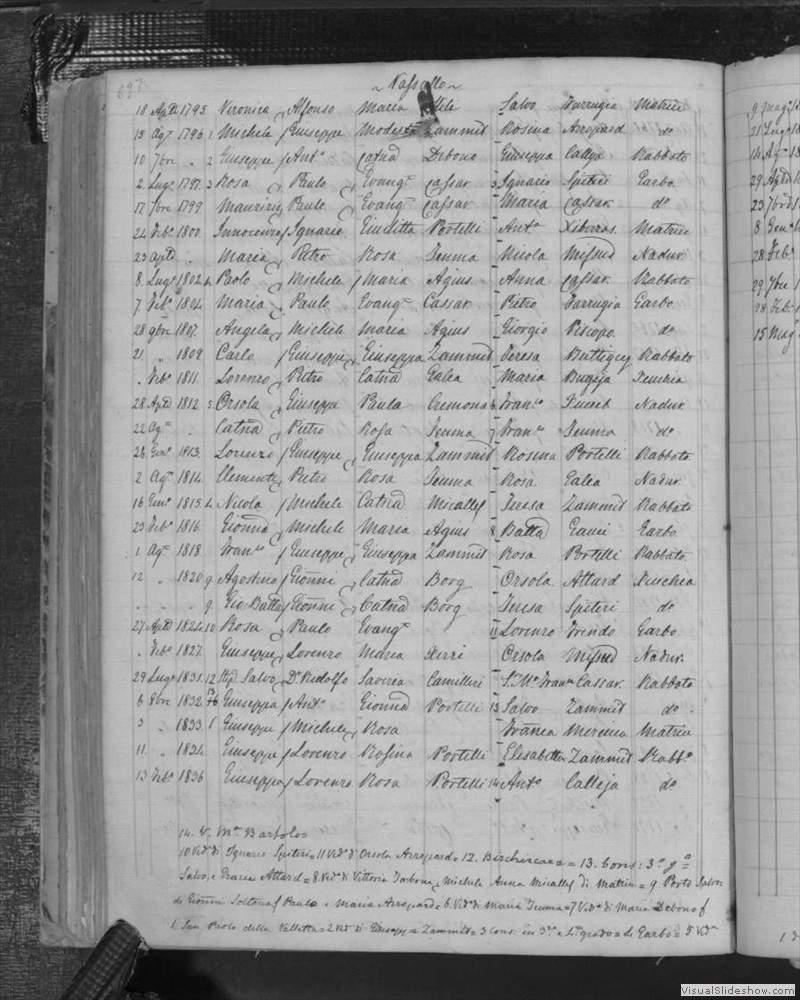 687
~ Vassallo ~
18 Aple 1795 Veronica Alfonso Maria Salvo Farrugia Matrice
15 Agto 1796 1 Michele Giuseppe Modesta Zammit Rosina Azzopard do
10 7bre " 2 Giuseppe Anto Catna Debono Giuseppa Calleja Rabbato
2 Lugo 1797 3 Rosa Paulo Evanga Cassar 3 Ignazio Spiteri Garbo
17 7bre 1799 Maurizio Paulo Evanga Cassar Maria Cassar do
24 Febo 1800 Innocenza Ignazio Giuditta Portelli Anto Xiberras Matrice
23 Aple " Maria Pietro Rosa Teuma Nicola Mifsud Nadur
8 Lugo 1802 4 Paolo Michele Maria Agius Anna Cassar Rabbato
7 Febo 1804 Maria Paulo Evanga Cassar Pietro Farrugia Garbo
28 9bre 1807 Angela Michele Maria Agius Giorgio Piscopo do
21 " 1809 Carlo Giuseppe Giuseppa Zammit Teresa Buttigieg Rabbato
. Febo 1811 Lorenzo Pietro Catna Galea Maria Bugeja Xeuchia
28 Aple 1812 5 Orsola Giuseppe Paula Cremona 6 Franco Nadur
22 Ago " Catna Pietro Rosa Teuma 7 Franco Teuma do
26 Geno 1813 Lorenzo Giuseppe Giuseppa Zammit Rosina Portelli Rabbato
2 Ago 1814 Clemente Pietro Rosa Teuma Rosa Galea Nadur
16 Geno 1815 4 Nicola Michele Catna Micallef Teresa Zammit Rabbato
23 Febo 1816 Gionna Michele Maria Agius 8 Batta Gauci Garbo
1 Ago 1818 Franco Giuseppe Giuseppa Zammit Rosa Portelli Rabbato
12 " 1820 9 Agostino Gionni Catna Borg Orsola Attard Xeuchia
" " " 9 Gio Batta Gionni Catna Borg Teresa Spiteri do
27 Aple 1824 10 Rosa Paulo Evanga 11 Lorenzo Frendo Garbo
. Febo 1827 Giuseppe Lorenzo Maria Xerri Orsola Mifsud Nadur
29 Lugo 1831 12 Salvo Dr Rudolfo Saverea Camilleri Sa Ma Franca Cassar Rabbato
6 8bre 1832 13 Giuseppa Anto Gionna Portelli 13 Salvo Zammit do
3 " 1833 1 Giuseppe Michele Rosa Franca Mercieca Matrice
11 " 1834 Giuseppe Lorenzo Rosina Portelli Elisabetta Zammit Rabbo
13 Febo 1836 Giuseppa Lorenzo Rosa Portelli 14 Anto Calleja do
14. Va Ma Bartolo=
10 Vido di Ignazio Spiteri = 11 Vido di Orsola Azzopard = 12. Birchircara = 13. Cons: 3o go
Salvo, e Grazia Attard = 8. Vido di Vittoria Michele Anna Micallef di Matrice = 9 Porto Salvo
di Gionni Soltana Paulo e Maria Azzopard = 6. Vido di Maria Teuma = 7 Vido di Maria Debono
1. San Paolo della Valletta = 2 Vido di Giuseppe Zammit = 3 Cons: in 3o e 4o grado = di Garbo = 5. Vida
9 Magg
21 Lugo 1
14 Ago 18
29 Aple 1
23 7bre 18
8 Geno 1
28 Febo
29 7bre 1
28 Febo 1
15 Mago
VisualSlideshow.com